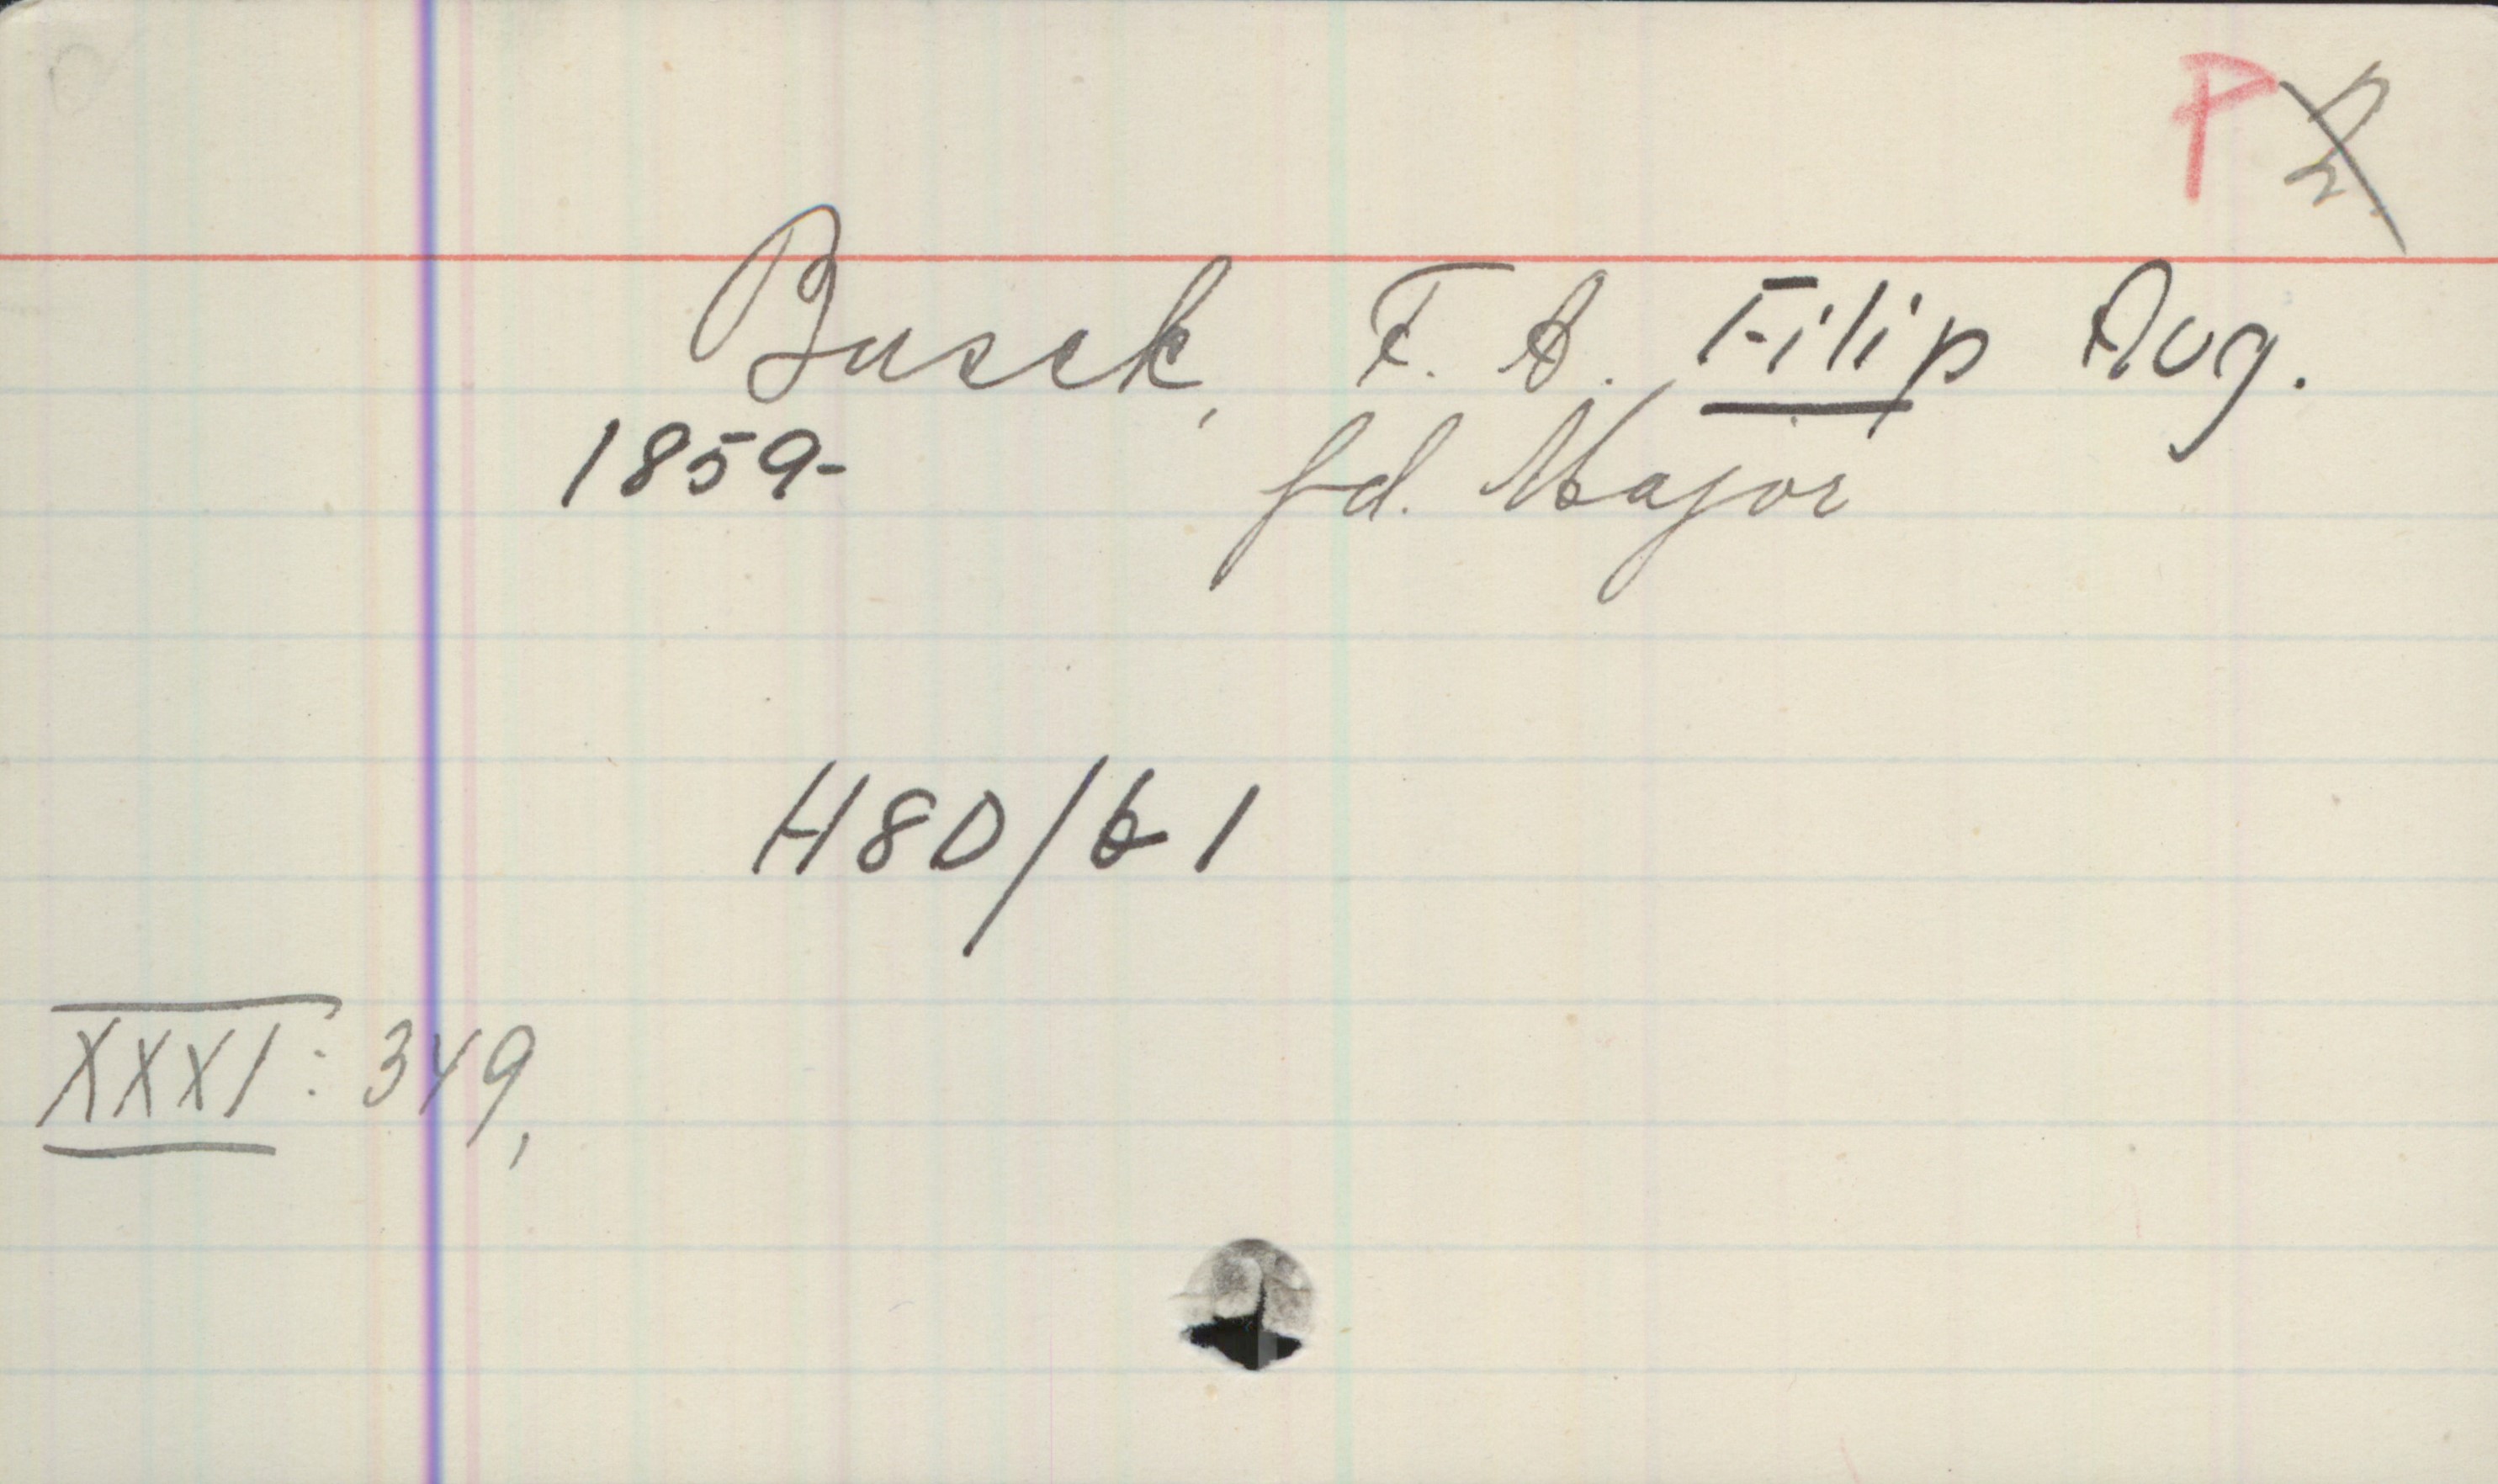 P
Busck, F. A. Filip Aug.
1859- fd. Major
H80/61
XXXI: 349,